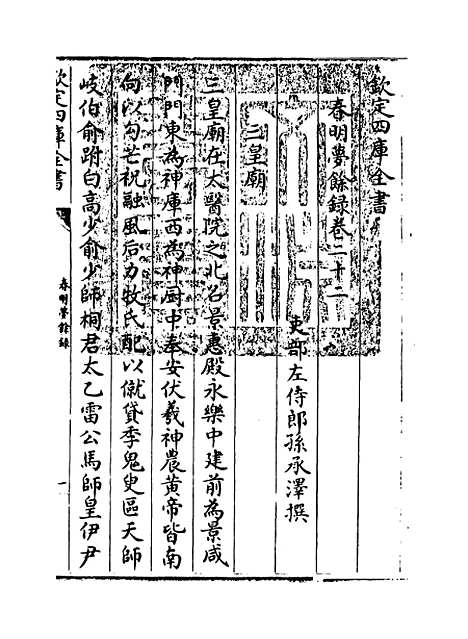 欽定四庫全書
春明夢餘録卷二十二
吏部左侍郎孫承澤撰
三皇廟
三皇廟在太醫院之北名景惠殿永樂中建前為景咸
門門東為神庫西為神厨中奉安伏羲神農黄帝皆南
向以勾芒祝融風后力牧氏配以僦貸季鬼臾區天師
岐伯俞跗白高少俞少師桐君太乙雷公馬師皇伊尹
欽定四庫全書
春明夢餘録
一